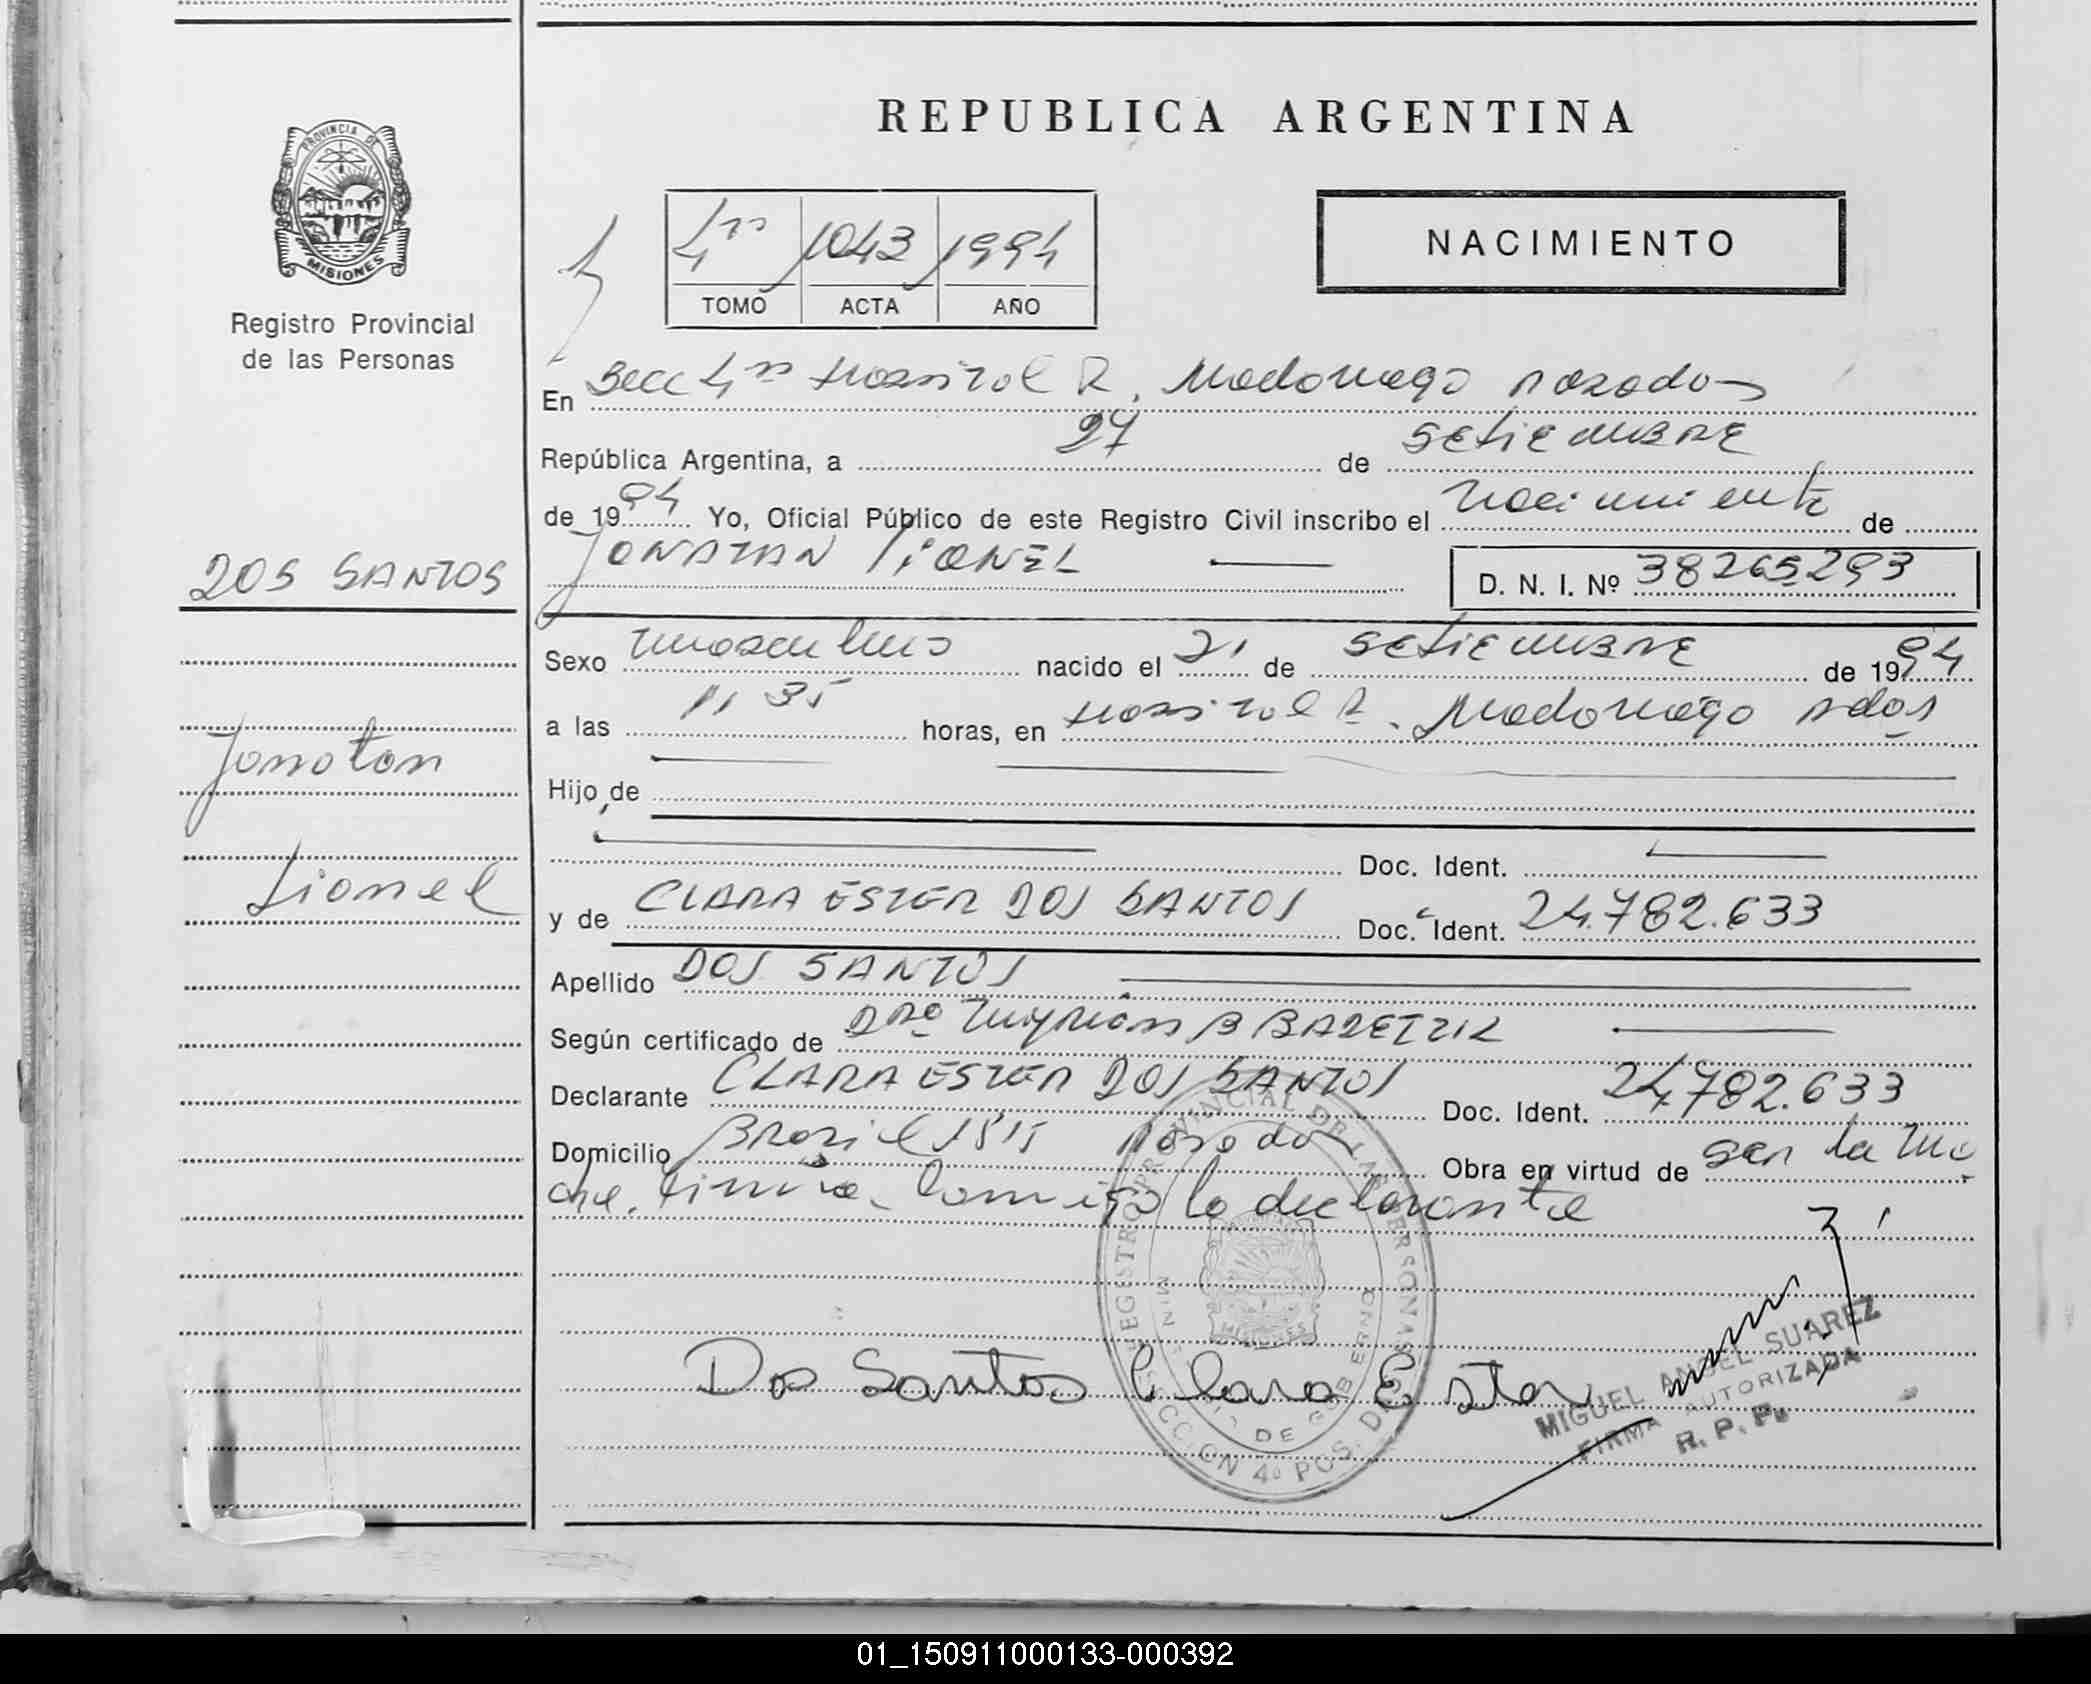 REPUBLICA ARGENTINA
PROVINCIA DE
MISIONES
Registro Provincial
de las Personas
4ta 1043 1994
TOMO ACTA AÑO
NACIMIENTO
En Secc 4ta Hospital R. Madariaga Posadas
República Argentina, a 27 de setiembre
de 1994 Yo, Oficial Público de este Registro Civil inscribo el nacimiento de
JONATAN LIONEL
D. N. I. Nº 38265293
DOS SANTOS
Jonatan
Lionel
Sexo masculino nacido el 21 de setiembre de 1994
a las 11,35 horas, en Hospital R. Madariaga Pdas
Hijo de
Doc. Ident.
y de CLARA ESTER DOS SANTOS Doc. Ident. 24.782.633
Apellido DOS SANTOS
Según certificado de Dra Myrian B
Declarante CLARA ESTER DOS SANTOS Doc. Ident. 24.782.633
Domicilio Brasil Posadas Obra en virtud de ser la ma
dre. Firma conmigo la declarante
REGISTRO PROVINCIAL DE LAS PERSONAS
SECCION 4a POS.
DE GOBIERNO
MISIONES
Dos Santos Clara Ester
MIGUEL ANGEL SUAREZ
FIRMA AUTORIZADA
R. P. P.
01_150911000133-000392